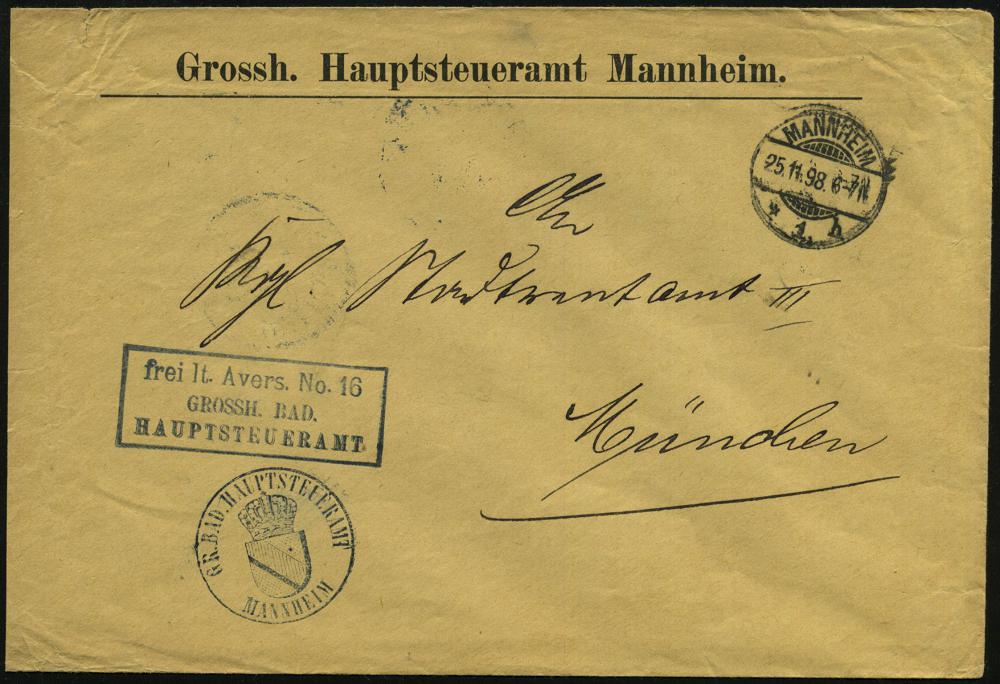 Grossh. Hauptsteueramt Mannheim.
MANNHEIM
25.11.98. 6-7N.
* 1. h
An
Kgl. Stadtrentamt III
München
frei lt. Avers. No. 16
GROSSH. BAD.
HAUPTSTEUERAMT
GR. BAD. HAUPTSTEUERAMT
MANNHEIM